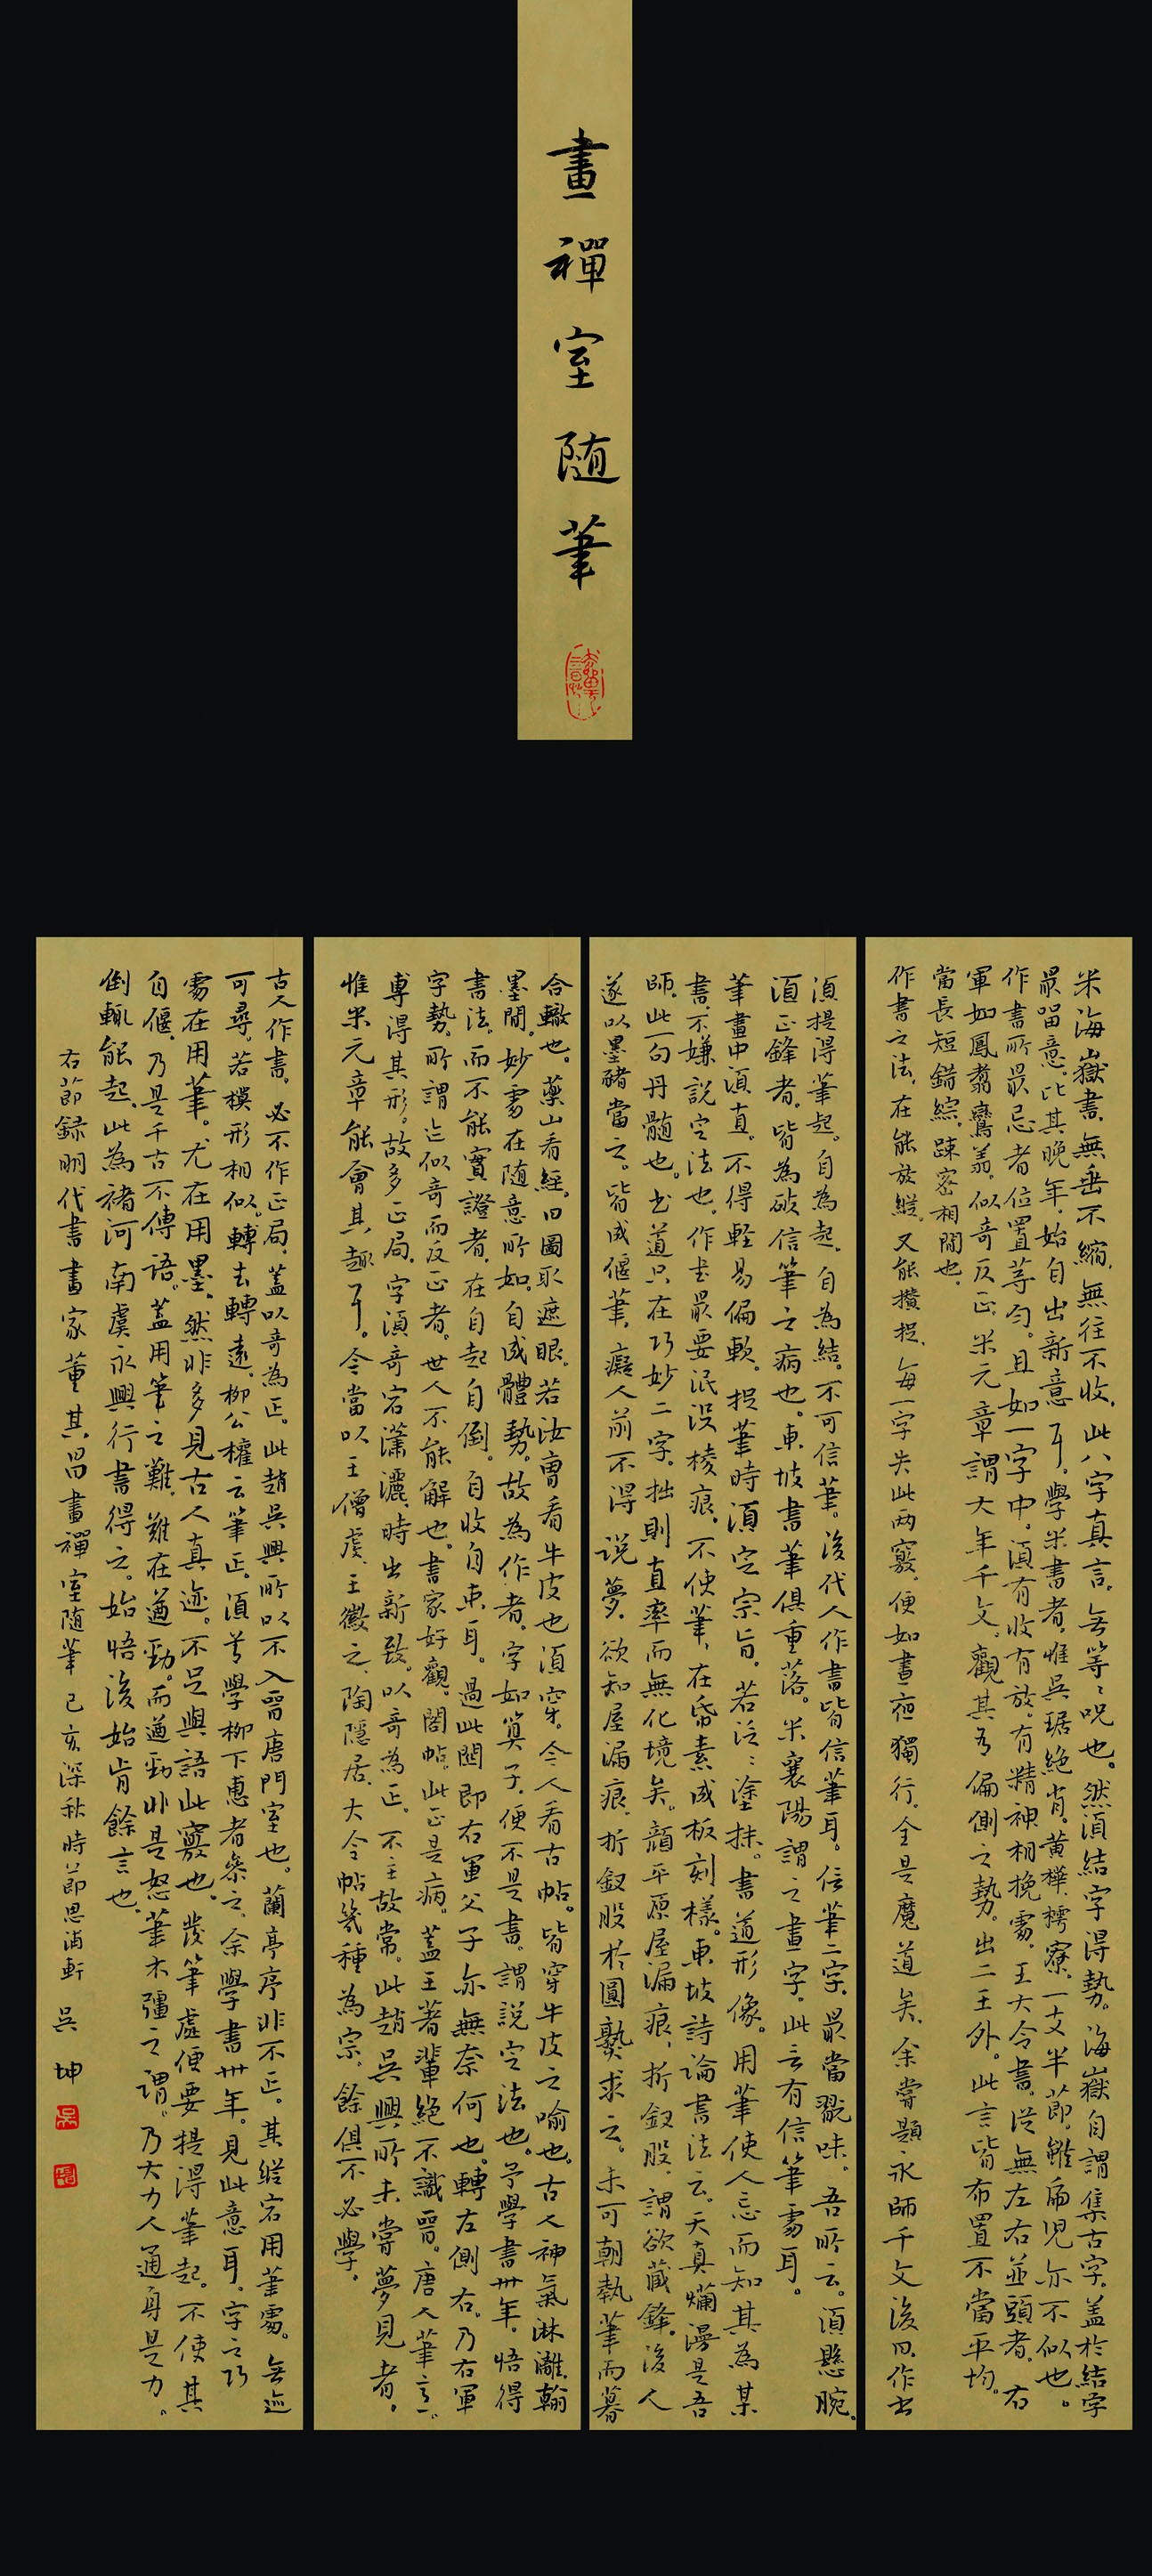 畫禪室随筆
米海嶽書，無垂不縮，無往不收，此八字真言，無等々呪也。然須結字得勢。海嶽自謂集古字，盖於結字
最留意。比其晚年，始自出新意耳。學米書者，惟吳琚絕肖。黃樺、樗寮，一支半節，雖虎児亦不似也。
作書所最忌者位置等勻。且如一字中，須有收有放，有精神相挽處。王大令書，從無左右並頭者。右
軍如鳳翥鸞翥，似奇反正。米元章謂大年千文，觀其有偏側之勢，出二王外。此言皆布置不當平均，
當長短錯綜，疎密相間也。
作書之法，在能放縱，又能攢捉。每一字失此两竅，便如晝夜獨行，全是魔道矣。余嘗題永師千文後曰，作书
須提得筆起，自為起，自為結，不可信筆。後代人作書皆信筆耳。信筆二字，最當翫味。吾所云，須懸腕，
須正鋒者，皆為破信筆之病也。東坡書筆俱重落。米襄陽謂之畫字，此言有信筆處耳。
筆畫中須直，不得軽易偏軟。捉筆時須定宗旨，若泛泛塗抹，書道形像。用筆使人忘而知其為某
書，不嫌說定法也。作书最要泯没棱痕，不使筆，在帋素成板刻樣。東坡詩論書法云，天真爛漫是吾
師。此一句丹髓也。书道只在巧妙二字，拙則直率而無化境矣。顔平原屋漏痕，折釵股，謂欲藏鋒。後人
遂以墨豬當之。皆成偃筆，癡人前不得说夢，欲知屋漏痕，折釵股於圓熟求之。未可朝執筆而暮
合轍也。藥山看經，曰圖取遮眼，若汝曹看牛皮也須穿。今人看古帖，皆穿牛皮之喻也。古人神氣淋灕翰
墨間，妙處在随意所如，自成體勢。故為作者，字如筭子，便不是書。謂説定法也。予學書卅年，悟得
書法，而不能實證者，在自起自倒，自收自束耳。過此関即右軍父子亦無奈何也。轉左側右，乃右軍
字勢，所謂迹似奇而反正者，世人不能解也。書家好觀閣帖，此正是病。蓋王著輩絕不識晉唐人筆意，
專得其形，故多正局。字須奇宕瀟灑，時出新致，以奇為正，不主故常。此趙吳興所未嘗夢見者。
惟米元章能會其趣耳。今當以王僧虔、王徽之、陶隱居、大令帖幾種為宗，餘俱不必學。
古人作書，必不作正局。蓋以奇為正。此趙吳興所以不入晉唐門室也。蘭亭序非不正，其縱宕用筆處，無迹
可尋。若模形相似，轉去轉遠。柳公權云筆正，須善學柳下惠者參之。余學書卅年，見此意耳。字之巧
處在用筆，尤在用墨。然非多見古人真迹，不足與語此竅也。發筆處便要提得筆起，不使其
自偃，乃是千古不傳語。蓋用筆之難，難在遒勁，而遒勁非是怒筆木彊之謂，乃大力人通身是力。
倒輒能起，此為褚河南虞永興行書得之。始悟後始肯餘言也。
右節録明代書畫家董其昌畫禪室随筆 己亥深秋時節思浦軒 吳坤